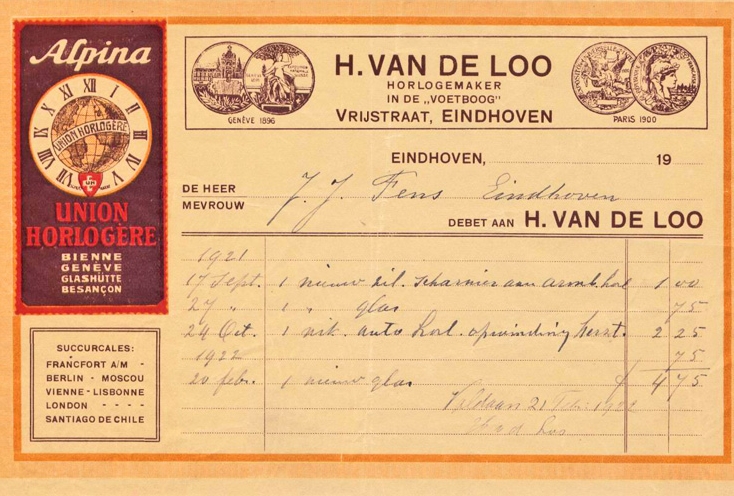 Alpina
XII I II III IV V VII VIII IX X XI
UNION HORLOGÈRE
UNION
HORLOGÈRE
BIENNE
GENÈVE
GLASHÜTTE
BESANÇON
SUCCURCALES:
FRANCFORT A/M -
BERLIN - MOSCOU
VIENNE - LISBONNE
LONDON - - - -
SANTIAGO DE CHILE
GENÈVE 1896
H. VAN DE LOO
HORLOGEMAKER
IN DE „VOETBOOG"
VRIJSTRAAT, EINDHOVEN
PARIS 1900
EINDHOVEN, 19
DE HEER
MEVROUW
J. J. Fens Eindhoven
DEBET AAN H. VAN DE LOO
1921
17 Sept. 1 nieuw zil. scharnier aan armb. horl 1 00
27 " 1 " glas 75
24 Oct. 1 nik. auto horl. opwinding herst. 2 25
1922 75
20 febr. 1 nieuw glas f 4 75
Voldaan 21 Febr. 1922
H v d Loo